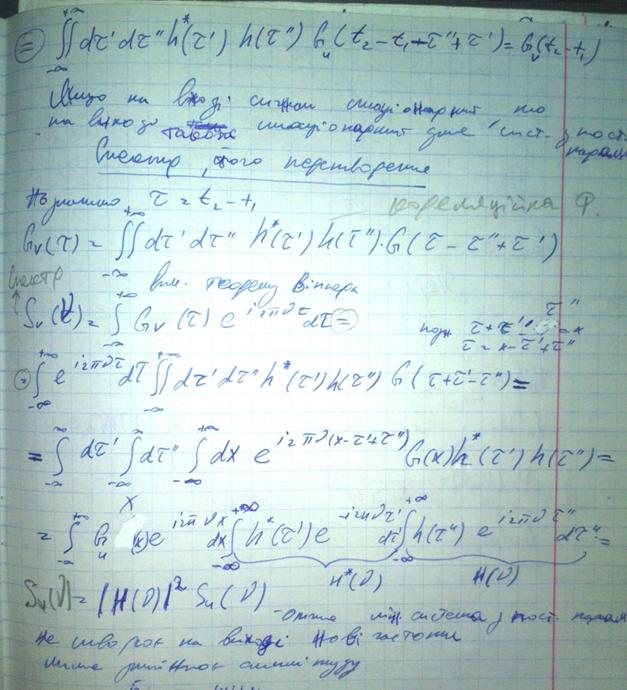 = ∫∫ dτ' dτ'' h*(τ') h(τ'') G_u (t₂ - t₁ - τ'' + τ') = G_v (t₂ - t₁)
-∞ +∞
Якщо на вході сигнал стаціонарний то
на виході стаціонарний для сист. з пост.
парам
Спектр, його перетворення
Позначимо τ = t₂ - t₁
кореляційна Ф.
G_v(τ) = ∫∫ dτ' dτ'' h*(τ') h(τ'')·G(τ - τ'' + τ')
-∞ +∞
Спектр
вик. теорему Вінера
S_v(ν) = ∫ G_v (τ) e^{i2πντ} dτ =
-∞ +∞
τ + τ' - τ'' = x
τ = x - τ' + τ''
= ∫ e^{i2πντ} dτ ∫∫ dτ' dτ'' h*(τ') h(τ'') G(τ + τ' - τ'') =
= ∫ dτ' ∫ dτ'' ∫ dx e^{i2πν(x - τ' + τ'')} G(x) h*(τ') h(τ'') =
x
= ∫ G_u (x) e^{i2πνx} dx ∫ h*(τ') e^{-i2πντ'} dτ' ∫ h(τ'') e^{i2πντ''} dτ'' =
H*(ν) H(ν)
S_v(ν) = |H(ν)|² S_u(ν)
- Отже лін. система з пост. парам
не створює на виході нові частоти
лише амплітуду